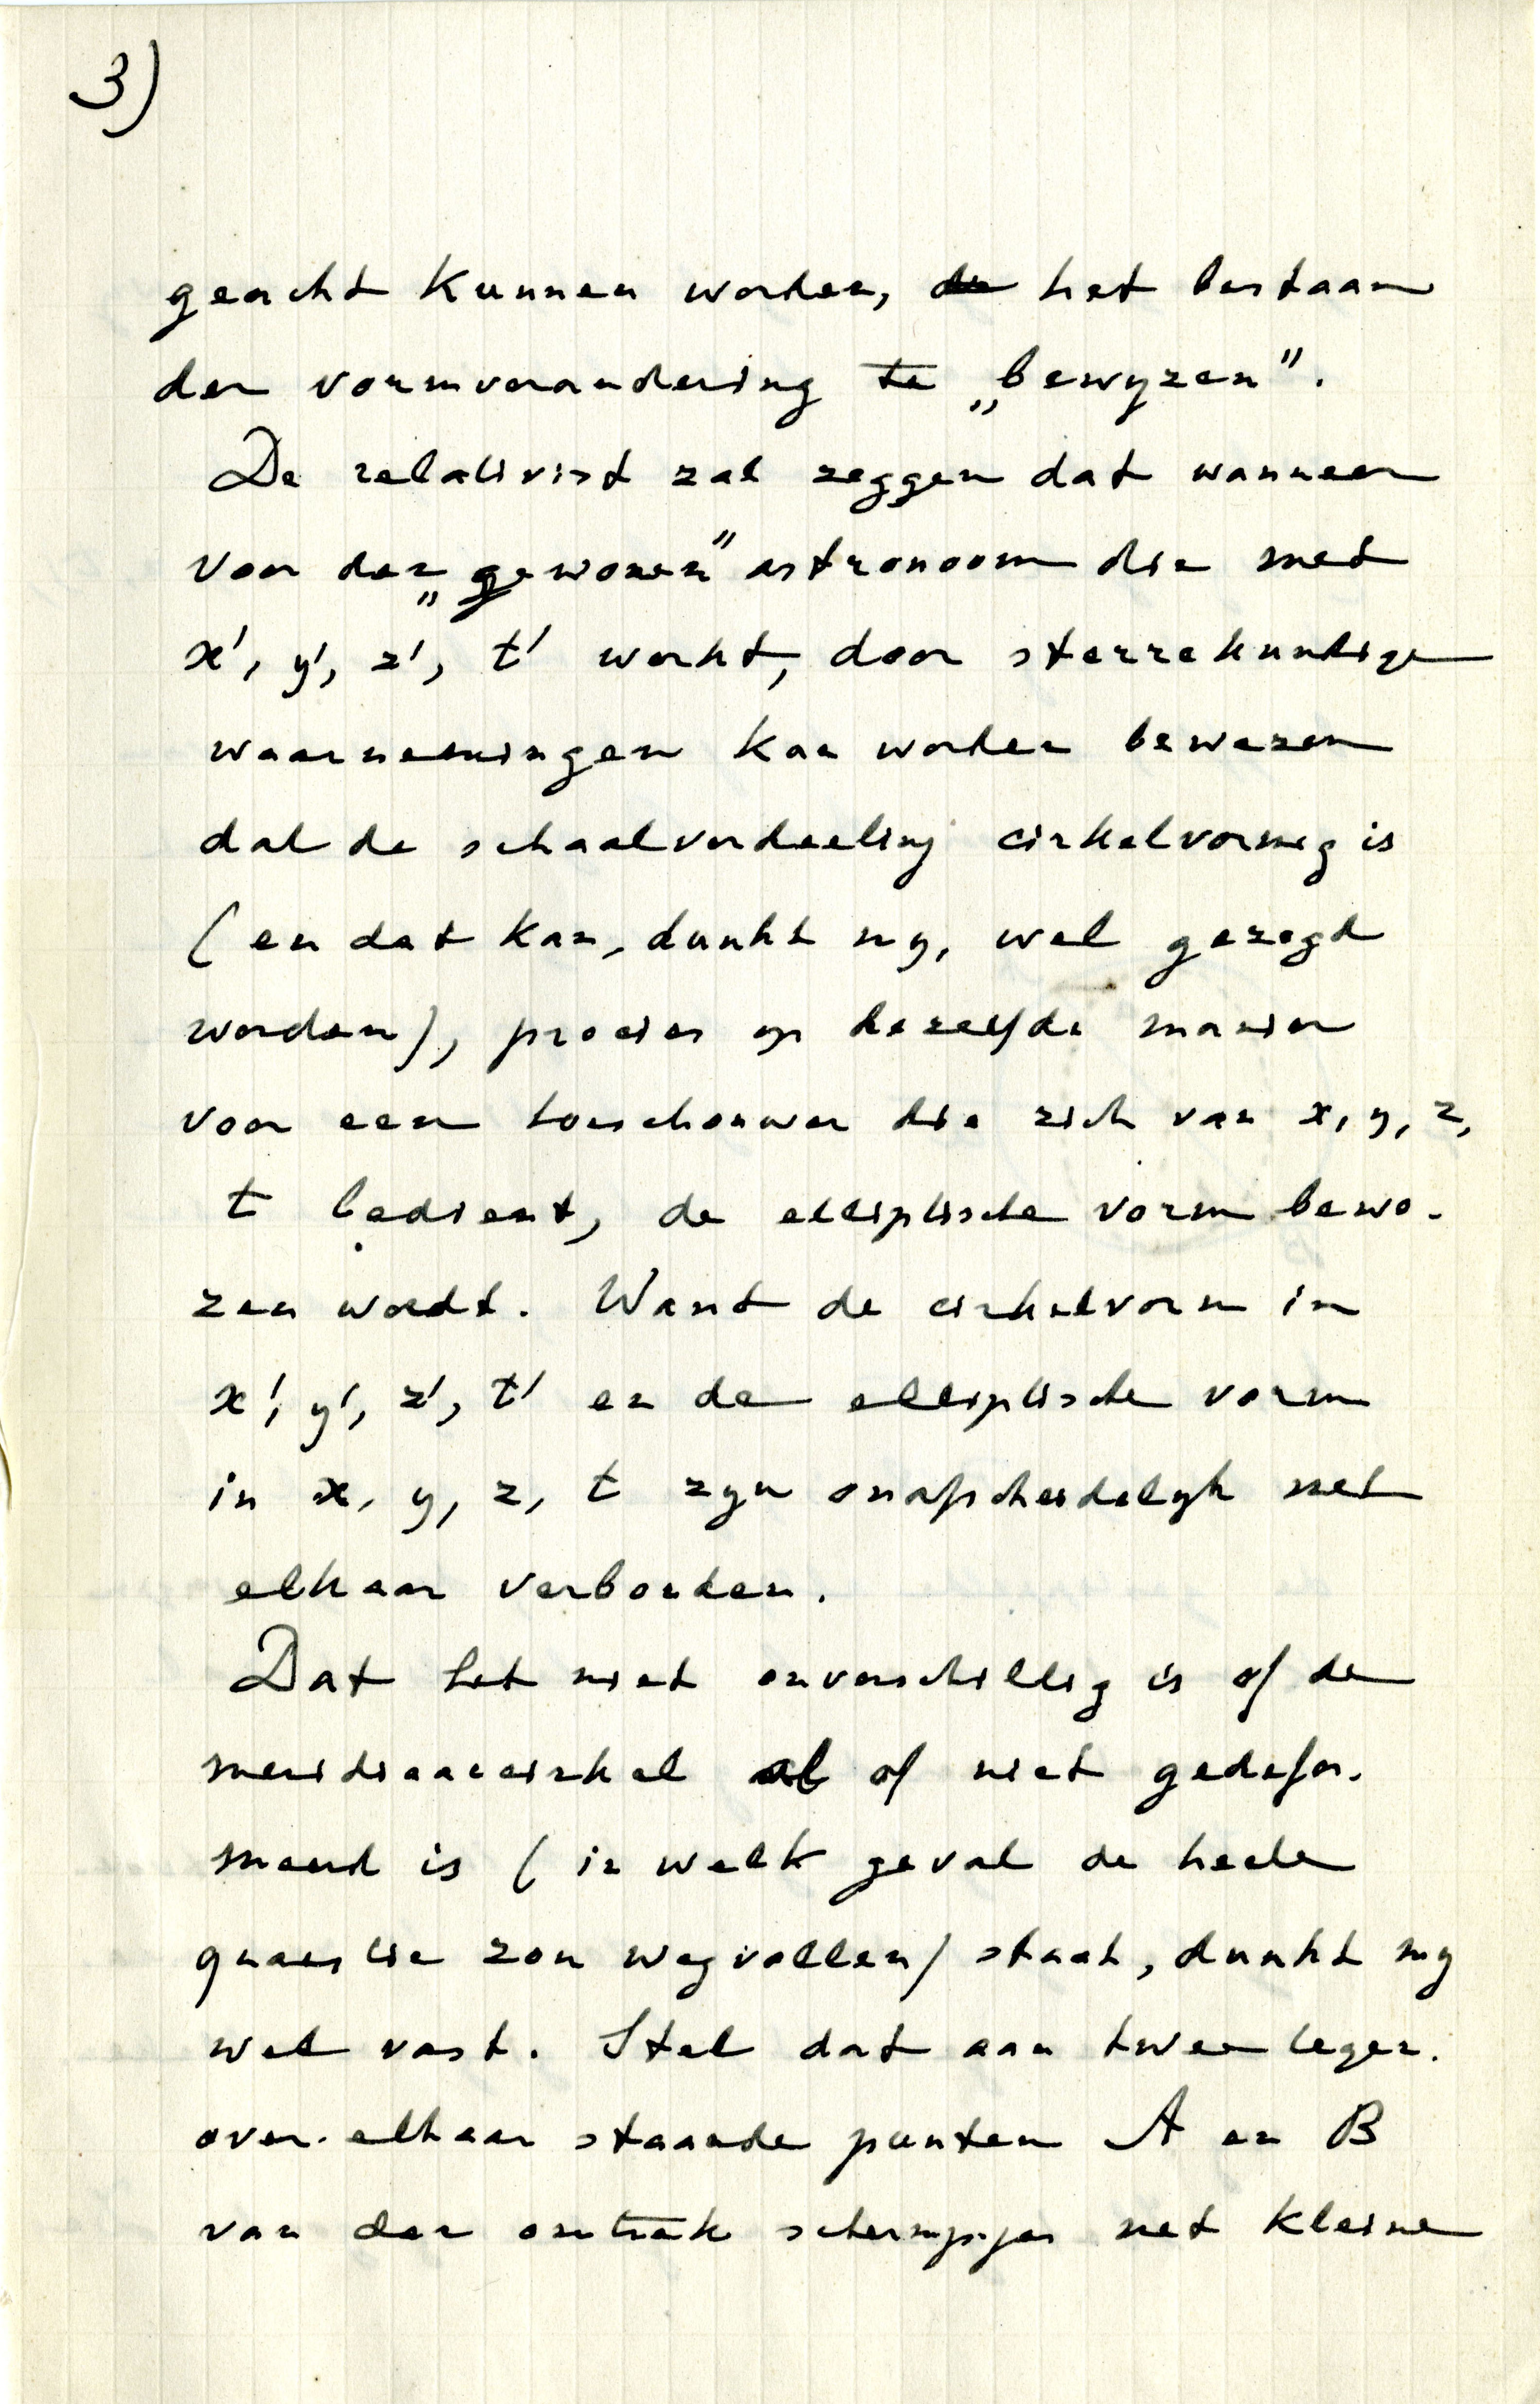 3)
geacht kunnen worden, de het bestaan
der vormverandering te „bewyzen”.
De relativist zal zeggen dat wanneer
voor den „gewonen” astronoom die met
x', y', z', t' werkt, door sterrekundige
waarnemingen kan worden bewezen
dat de schaalverdeeling cirkelvormig is
(en dat kan, dunkt my, wel gezegd
worden), precies op dezelfde manier
voor een toeschouwer die zich van x, y, z,
t bedient, de elliptische vorm bewe-
zen wordt. Want de cirkelvorm in
x', y', z', t' en de elliptische vorm
in x, y, z, t zyn onafscheidelyk met
elkaar verbonden.
Dat het niet onverschillig is of de
meridiaancirkel al of niet gedefor-
meerd is (in welk geval de heele
quaestie zou wegvallen) staat, dunkt my
wel vast. Stel dat aan twee tegen-
over elkaar staande punten A en B
van den omtrek schermpjes met kleine